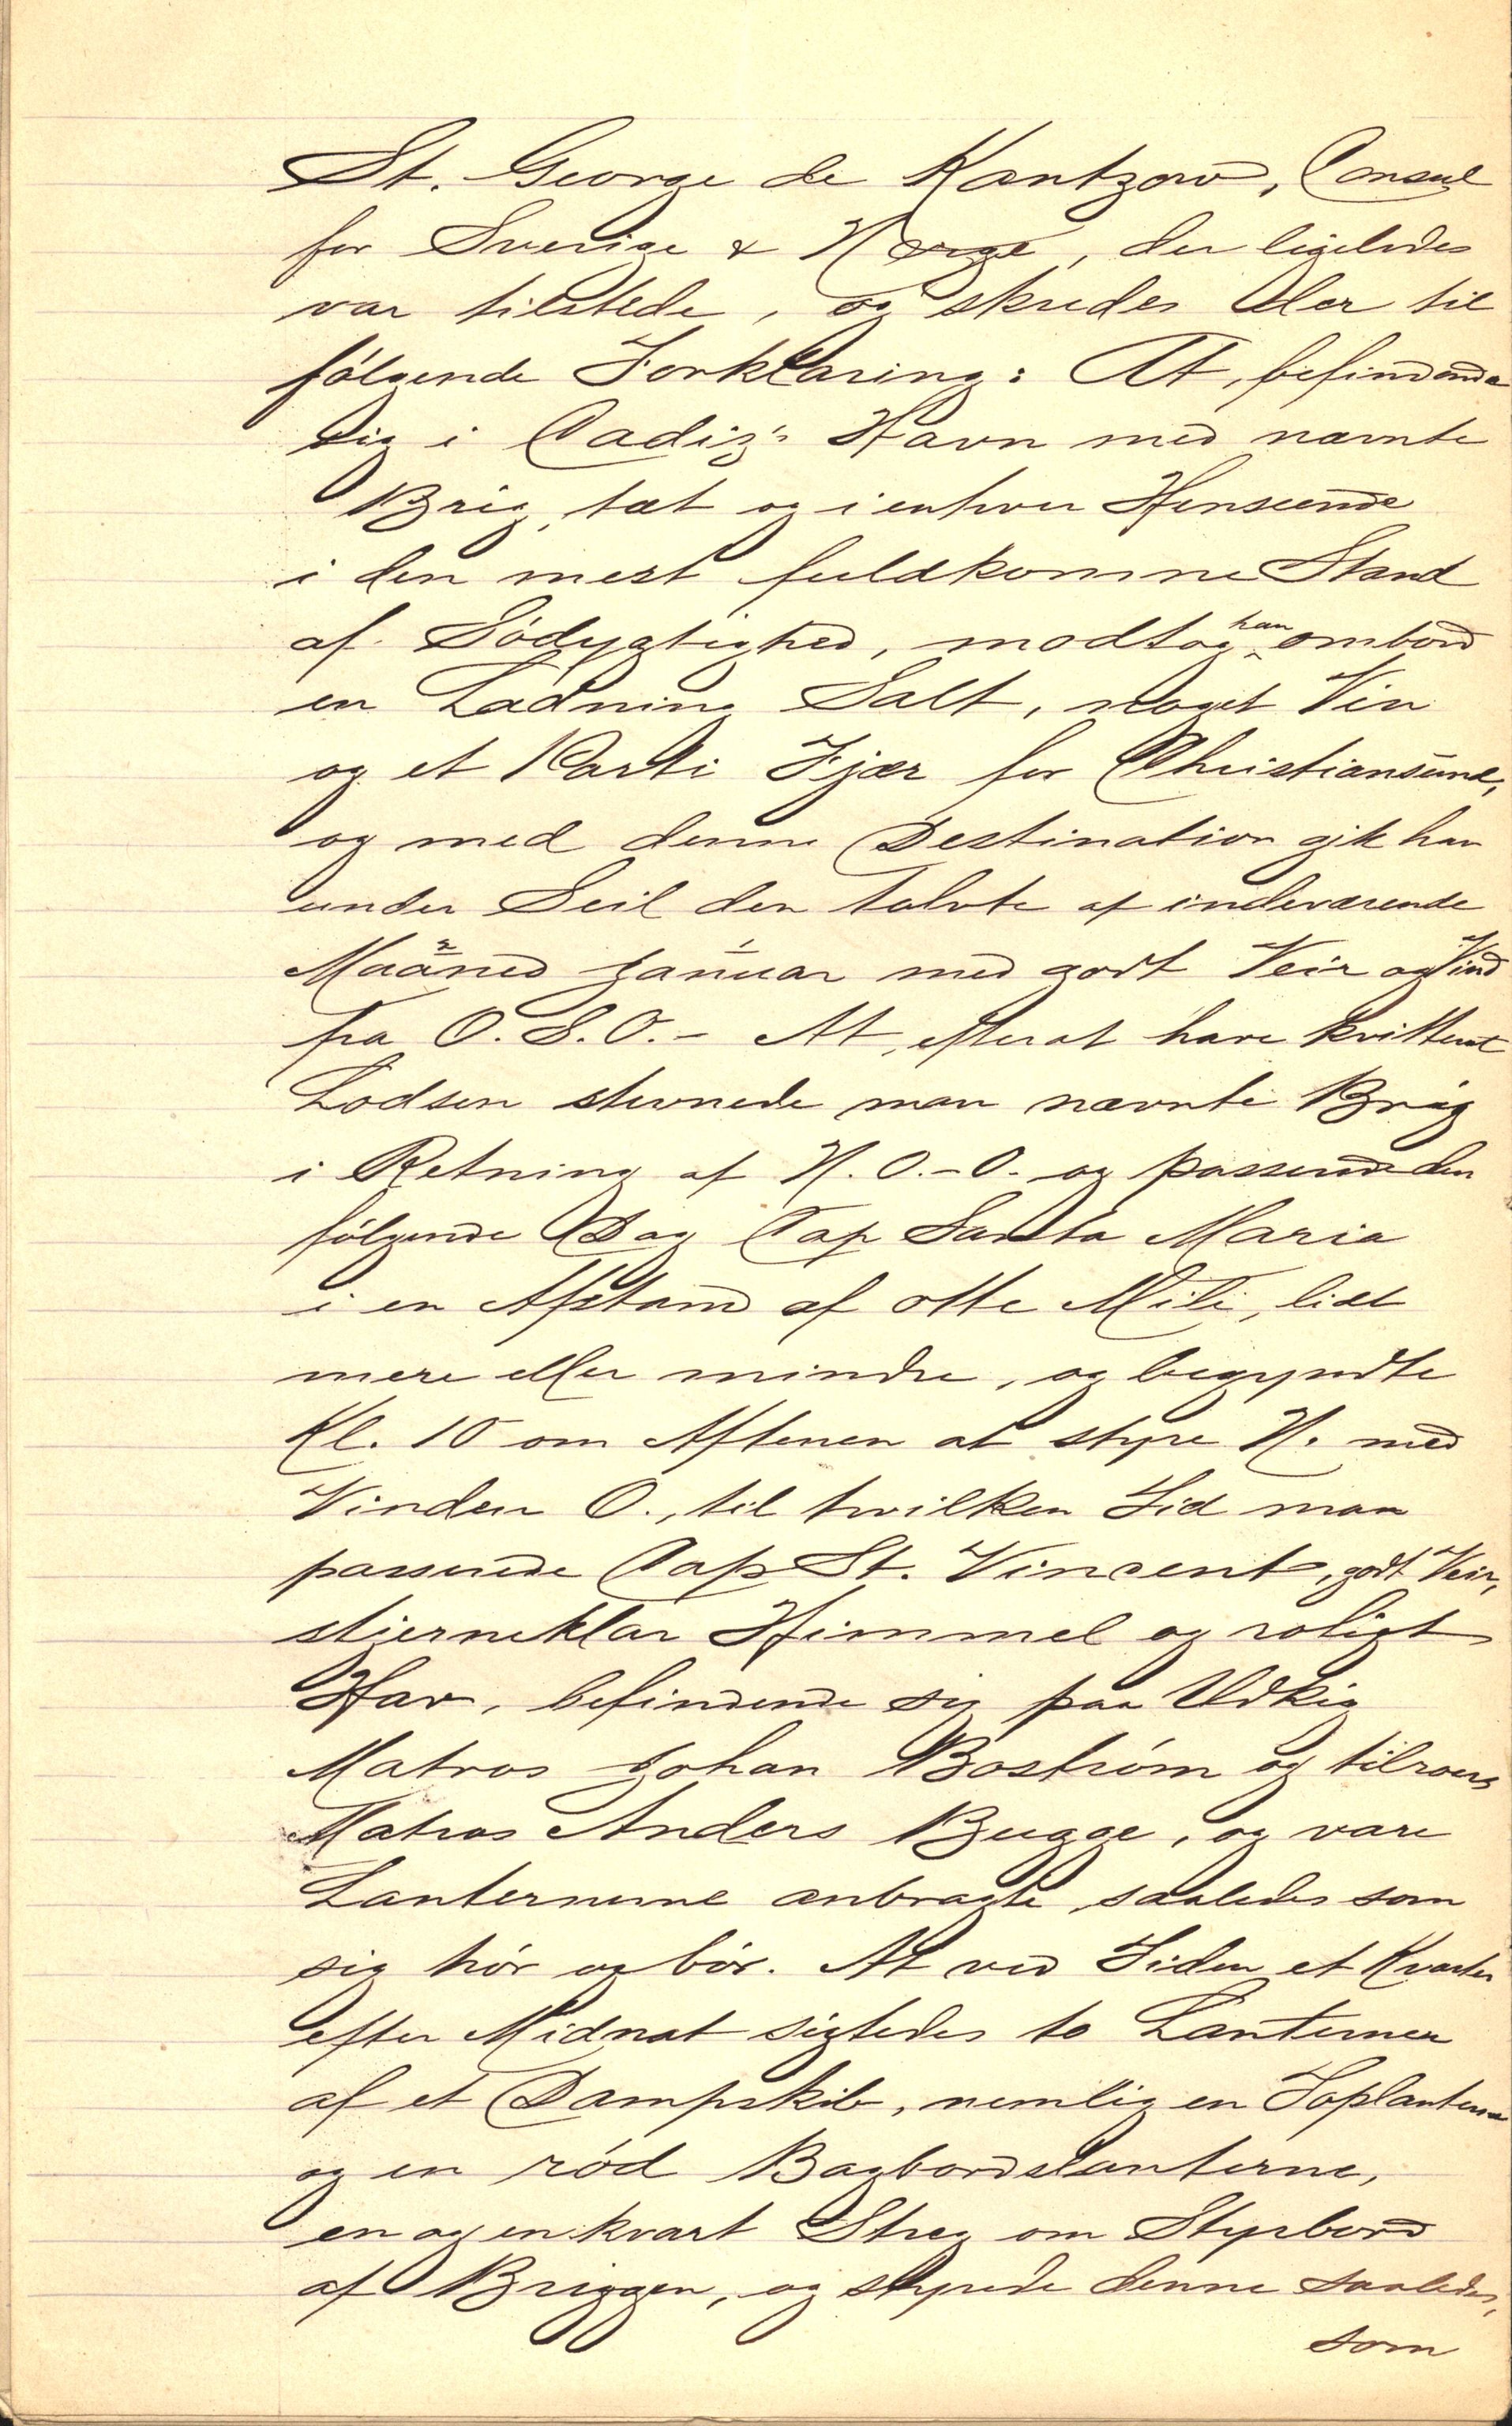 St. George de Kantzow, Consul
for Sverige & Norge, der ligeledes
var tilstede, og skredes der til
følgende Forklaring: At, befindende
sig i Cadiz's Havn med nævnte
Brig, tæt og i enhver Henseende
i den mest fuldkomne Stand
af Södygtighed, modtog han ombord
en Ladning Salt, noget Vin
og et Parti Fjær for Christiansund,
og med denne Destination gik han
under Seil den tolvte af indeværende
Maaned Januar med godt Veir og Vind
fra O. S. O. - At, efterat have kvitteret
Lodsen stevnede man nævnte Brig
i Retning af N. O. - O. og passerede den
følgende Dag Cap Santa Maria
i en Afstand af otte Mile, lidt
mere eller mindre, og begyndte
Kl. 10 om Aftenen at styre N. med
Vinden O., til hvilken Tid man
passerede Cap St. Vincent, godt Veir,
stjerneklar Himmel og roligt
Hav, befindende sig paa Udkig
Matros Johan Boström og tilroers
Matros Anders Bugge, og vare
Lanternerne anbragte, saaledes som
sig hör og bör. At ved Tiden et Kvarter
efter Midnat sigtedes to Lanterner
af et Dampskib, nemlig en Toplanterne
og en röd Bagbordslanterne,
en og en kvart Streg om Styrbord
af Briggen, og styrede denne saaledes,
som